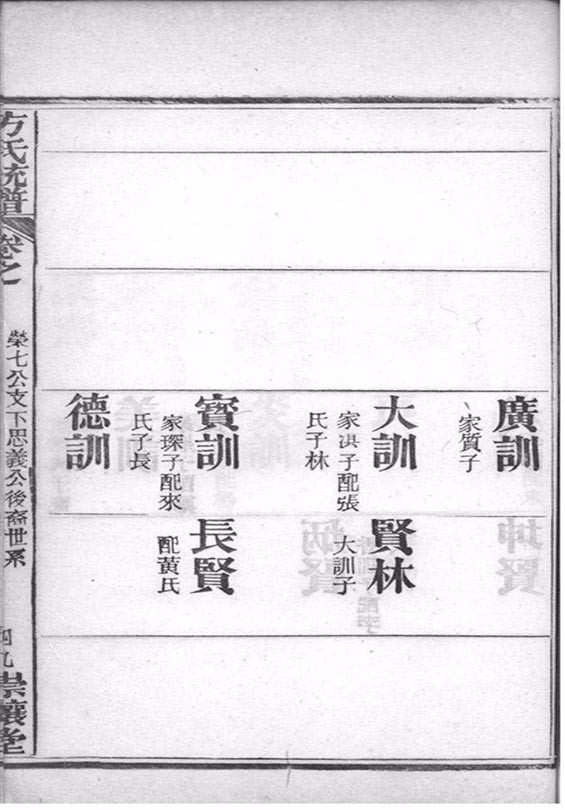 廣訓
家質子
大訓
家淇子配張
氏子林
賢林
大訓子
寳訓
家琛子配來
氏子長
長賢
配黃氏
德訓
方氏統譜
卷之
榮七公支下思義公後裔世系
九
崇讓堂